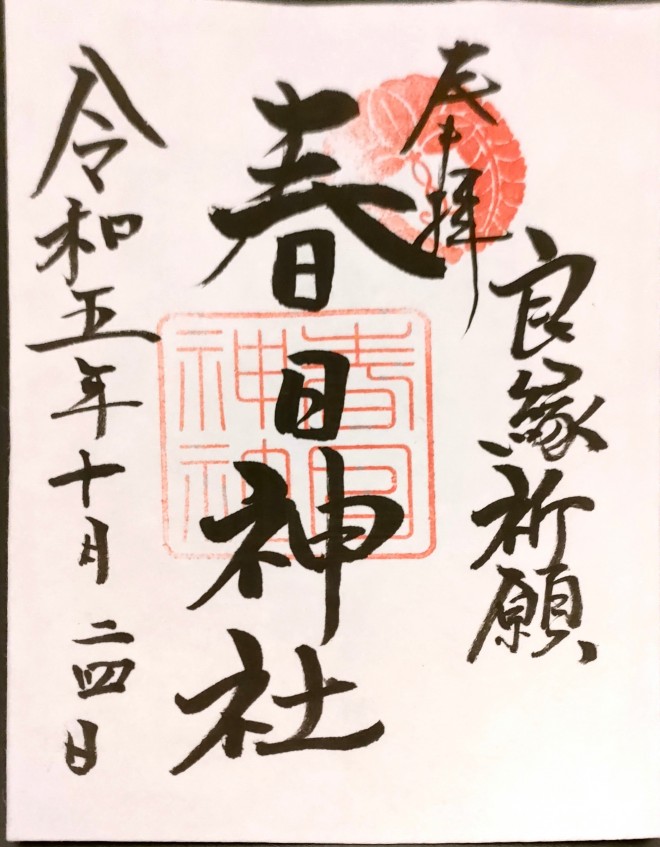 良縁祈願
奉拝
春日神社
春日
神社
令和五年十月二四日